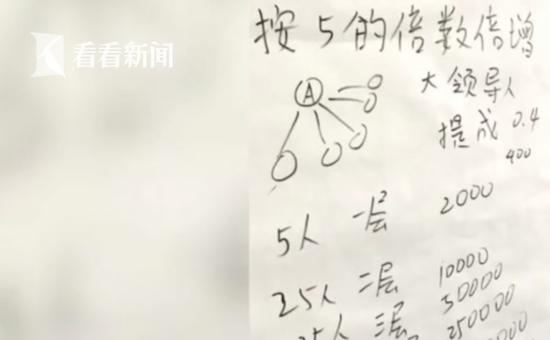 看看新闻
按5的倍数倍增
A
大领导人
提成 0.4
400
5人 一层 2000
25人 二层 10000
50000
三层 250000